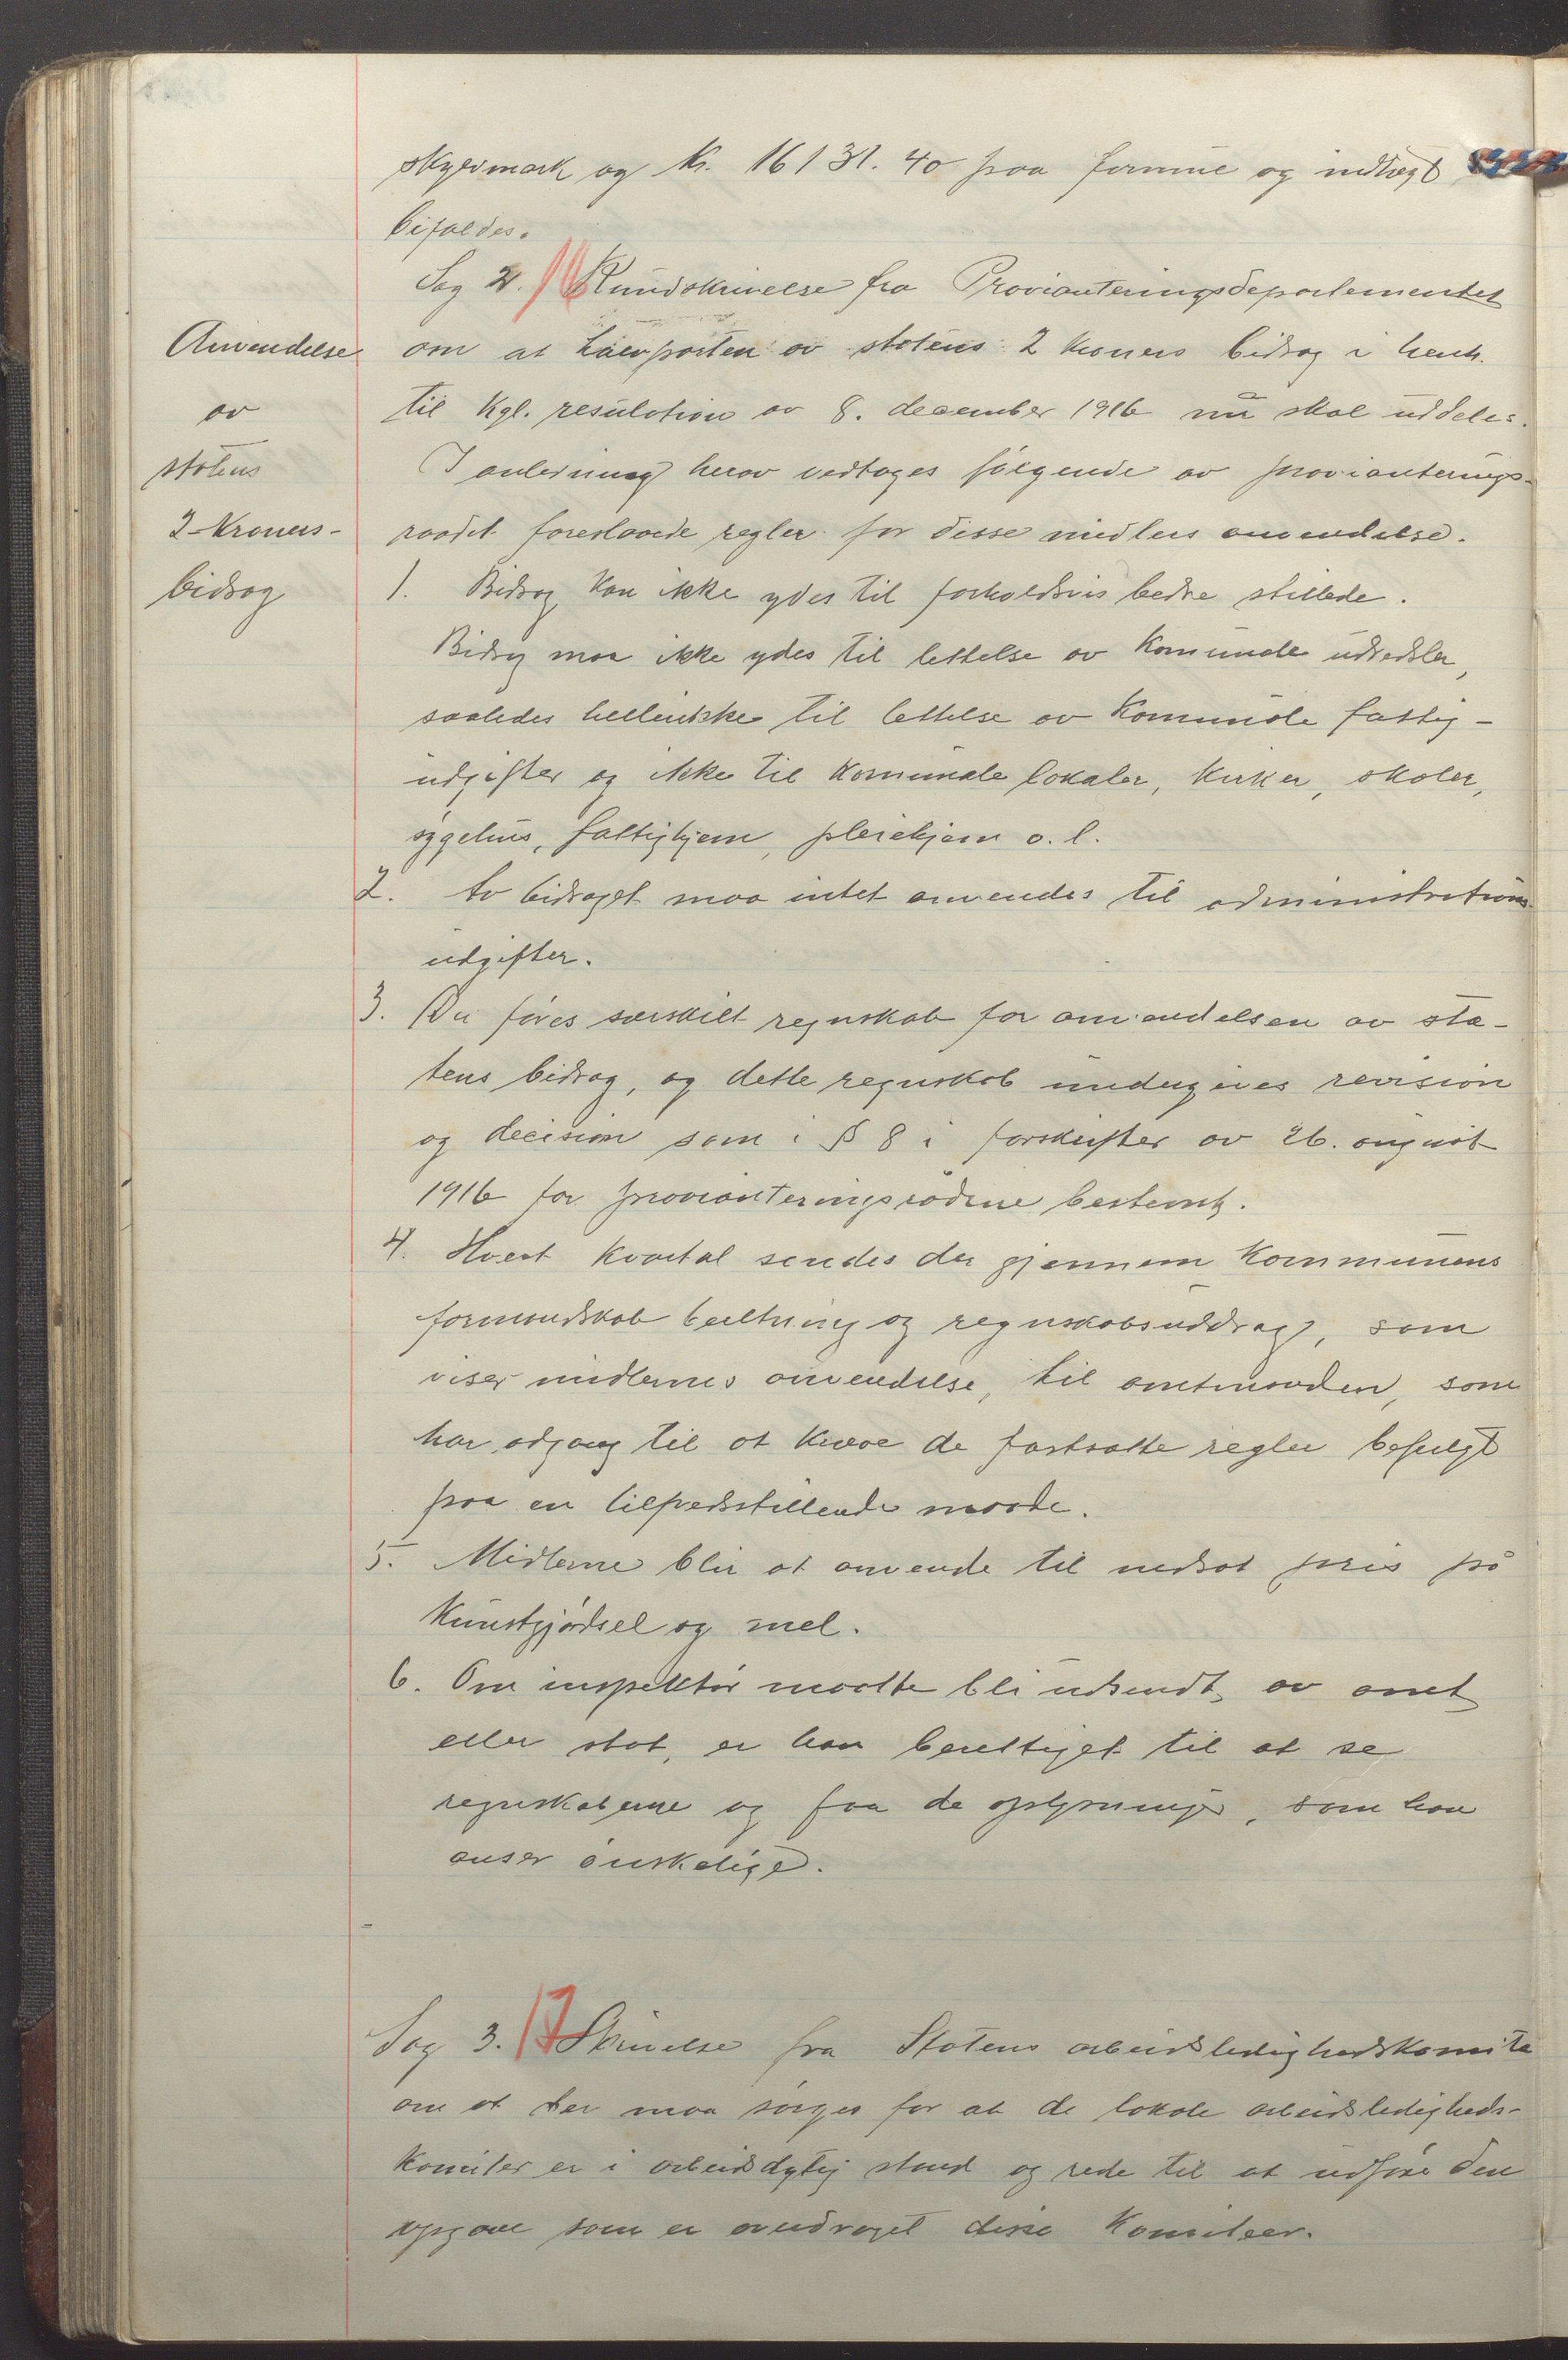 skyldmark og kr. 16131.40 paa formue og indtægt
bifaldes.
Sag 2. 16 Rundskrivelse fra Provianteringsdepartementet
om at halvparten av statens 2 kroners bidrag i henh.
til kgl. resulution av 8. december 1916 nu skal uddeles.
I anledning herav vedtages følgende av provianterings-
raadet foreslaaede regler for disse midlers anvendelse.
Anvendelse
av
statens
2-kroners-
bidrag
1. Bidrag kan ikke ydes til forholdsvis bedre stillede.
Bidrag maa ikke ydes til lettelse av komunale udredsler,
saaledes hellerikke til lettelse av komunale fattig-
udgifter og ikke til komunale lokaler, kirker, skoler,
sygehus, fattighjem, pleiehjem o. l.
2. Av bidraget maa intet anvendes til administrations-
udgifter.
3. Der føres særskilt regnskab for anvendelsen av sta-
tens bidrag, og dette regnskab undergives revision
og decision som i § 8 i forskrifter av 26. august
1916 for provianteringsrådene bestemt.
4. Hvert kvartal sendes der gjennem kommunens
formandskab beretning og regnskabsuddrag, som
viser midlernes anvendelse, til amtmanden, som
har adgang til at kræve de fastsatte regler befulgt
paa en tilfredsstillende maade.
5. Midlerne blir at anvende til nedsat pris på
kunstgjødsel og mel.
6. Om inspektør maatte bli udsendt av amt
eller stat, er han berettiget til at se
regnskaberne og faa de oplysninger, som han
anser ønskelige.
Sag 3. 17 Skrivelse fra Statens arbeidsledighedskomite
om at der maa sørges for at de lokale arbeidsledigheds-
komiter er i arbeidsdygtig stand og rede til at udføre den
opgave som er overdraget disse komiteer.